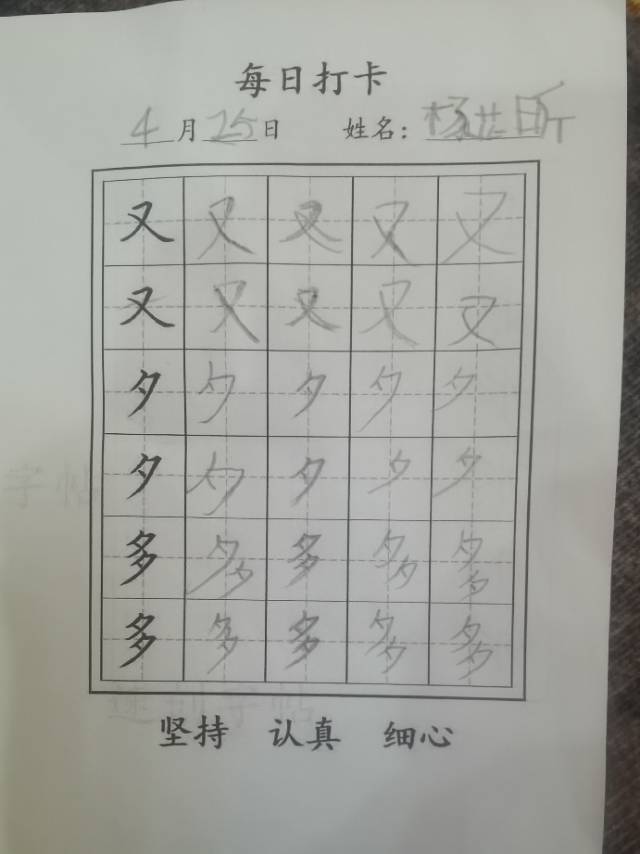 每日打卡
4月25日 姓名：杨世昕
又又又又又
又又又又又
夕夕夕夕夕
夕夕夕夕夕
多多多多多
多多多多多
坚持 认真 细心